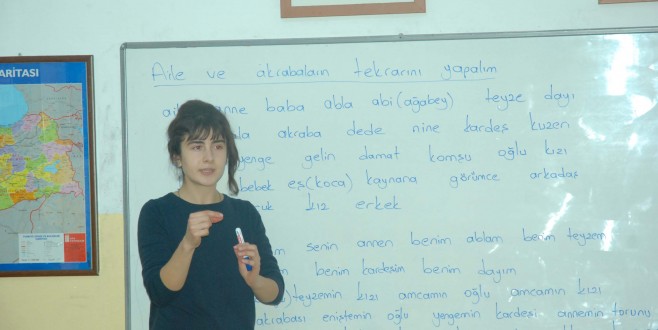 ARİTASI
Aile ve akrabaların tekrarını yapalım
anne baba abla abi (ağabey) teyze dayı
akraba dede nine kardeş kuzen
yenge gelin damat komşu oğlu kızı
bebek eş (koca) kaynana görümce arkadaş
kız erkek
senin annen benim ablam benim teyzem
benim kardeşim benim dayım
teyzemin kızı amcamın oğlu amcamın kızı
akrabası eniştemin oğlu yengemin kardeşi annemin torunu